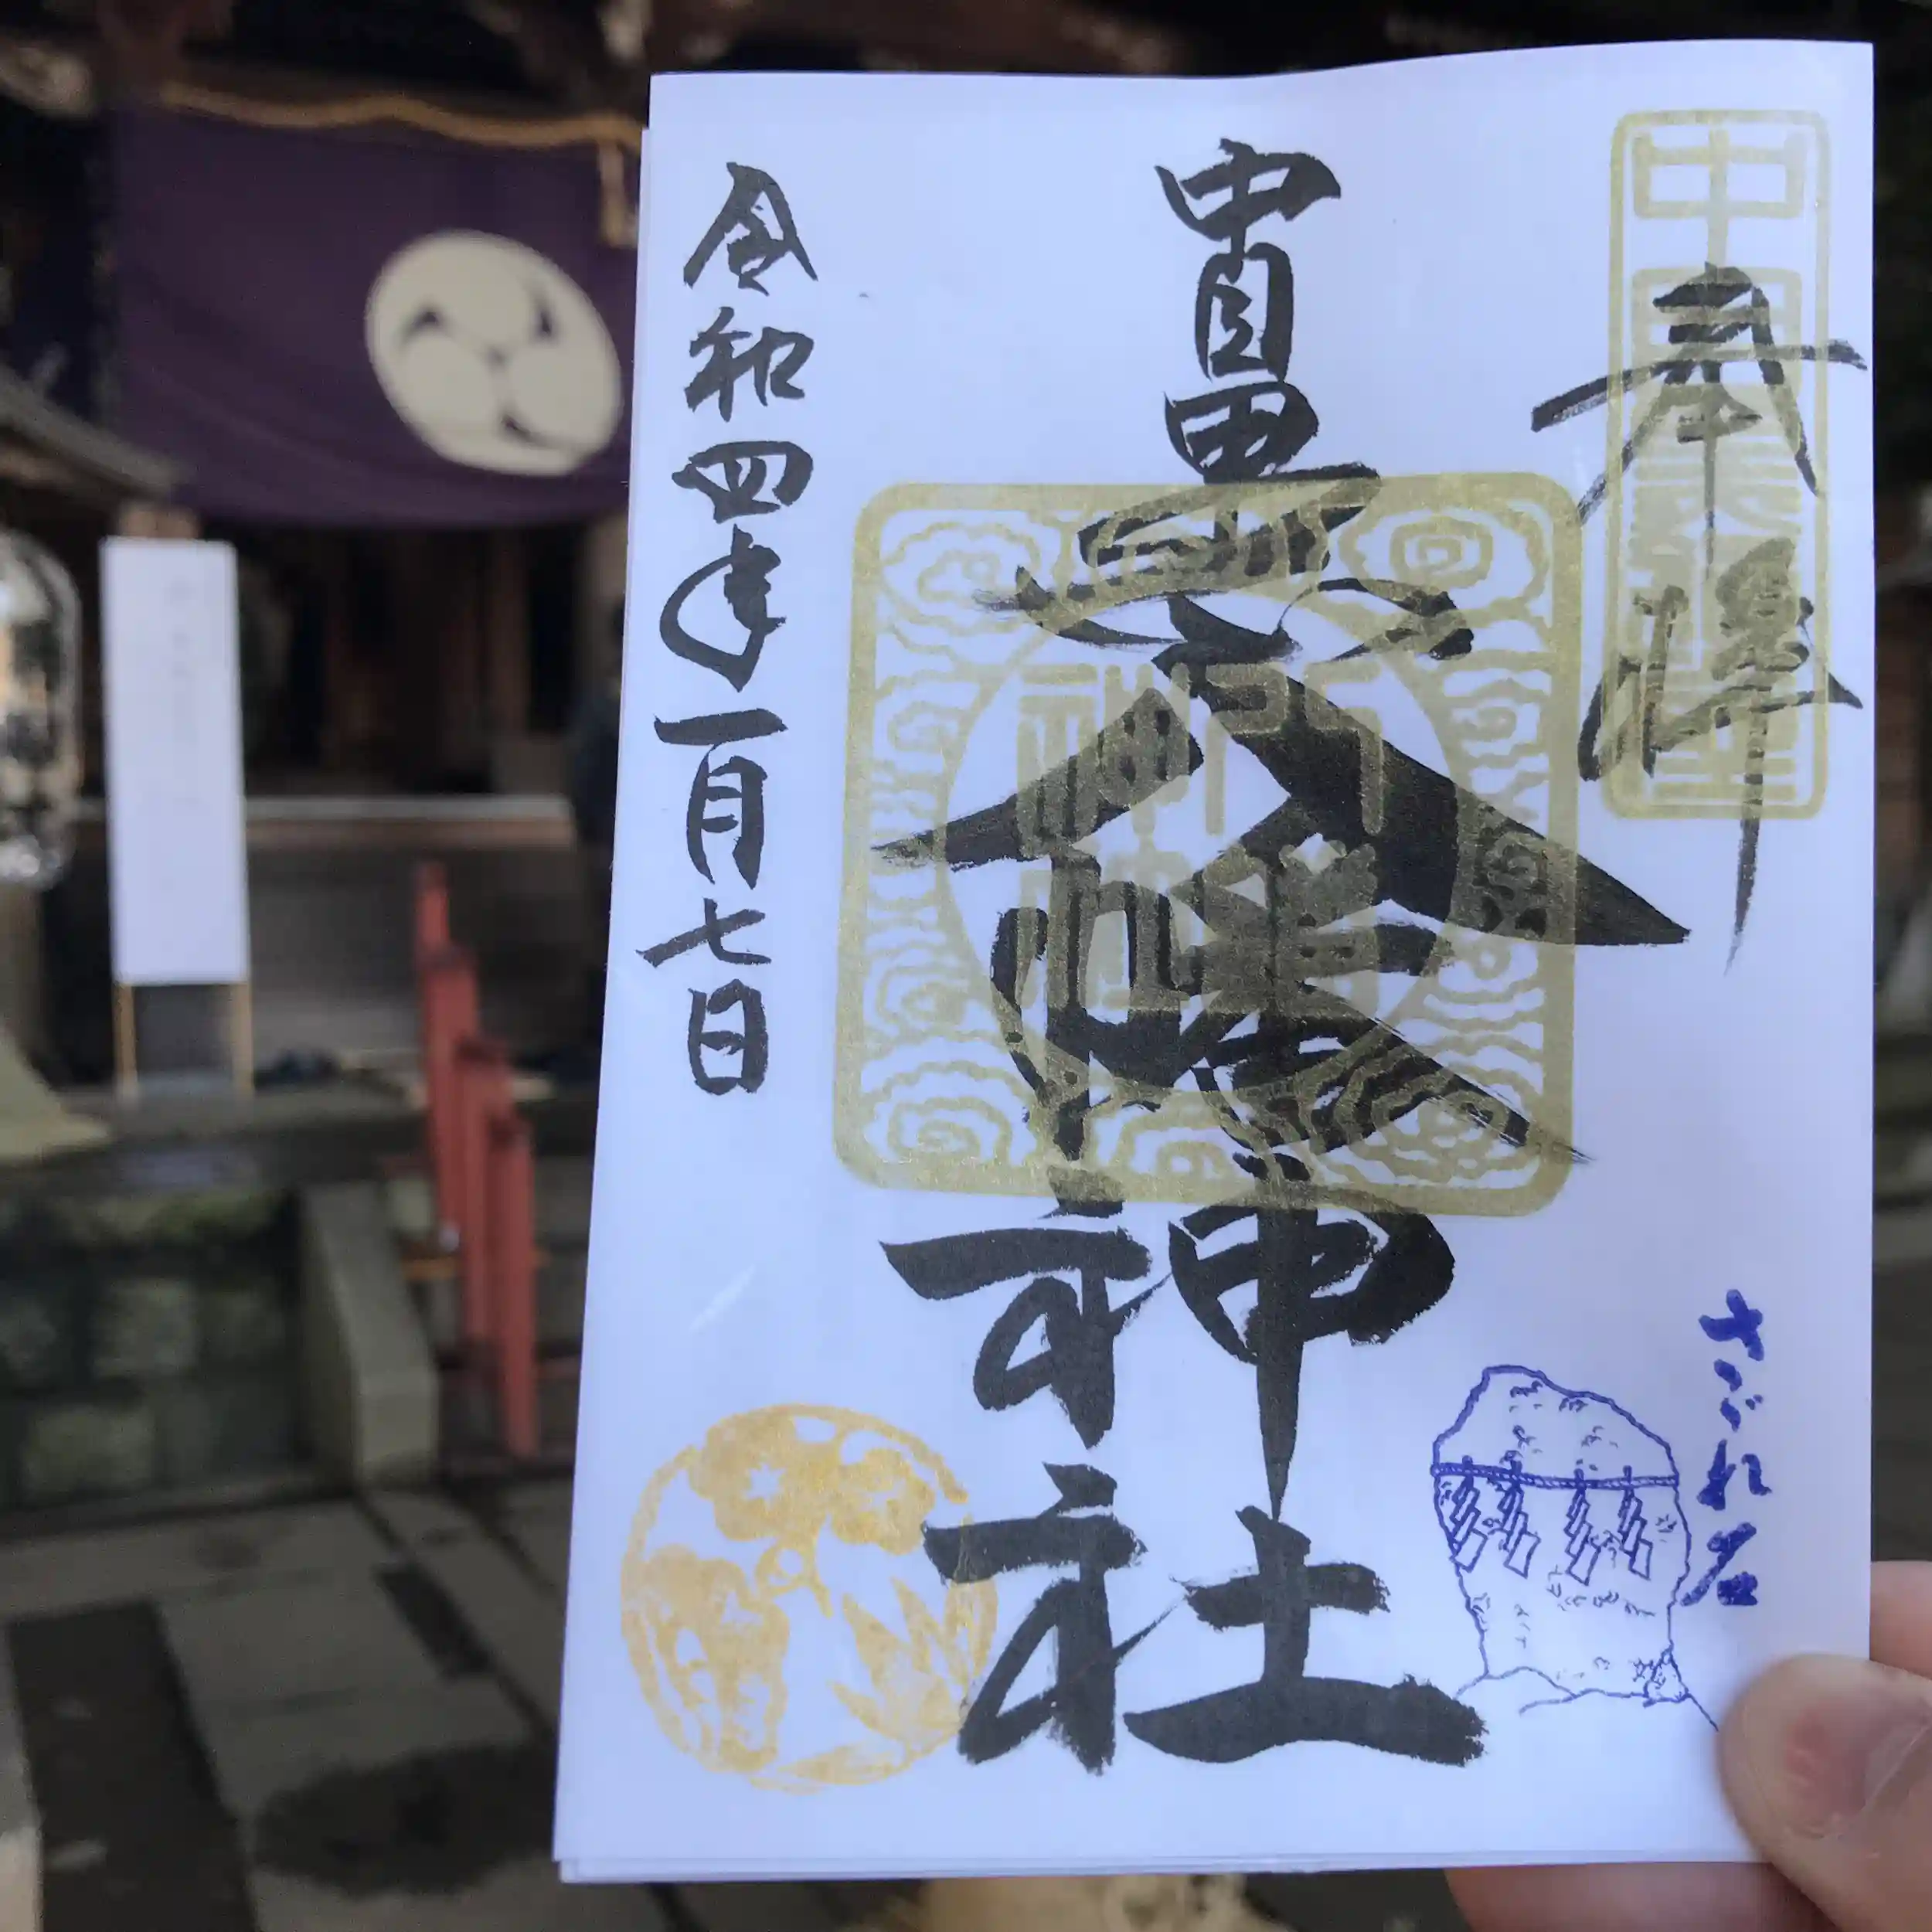 奉拝
中目黒
八幡神社
八幡
神社
さざれ石
令和四年一月七日